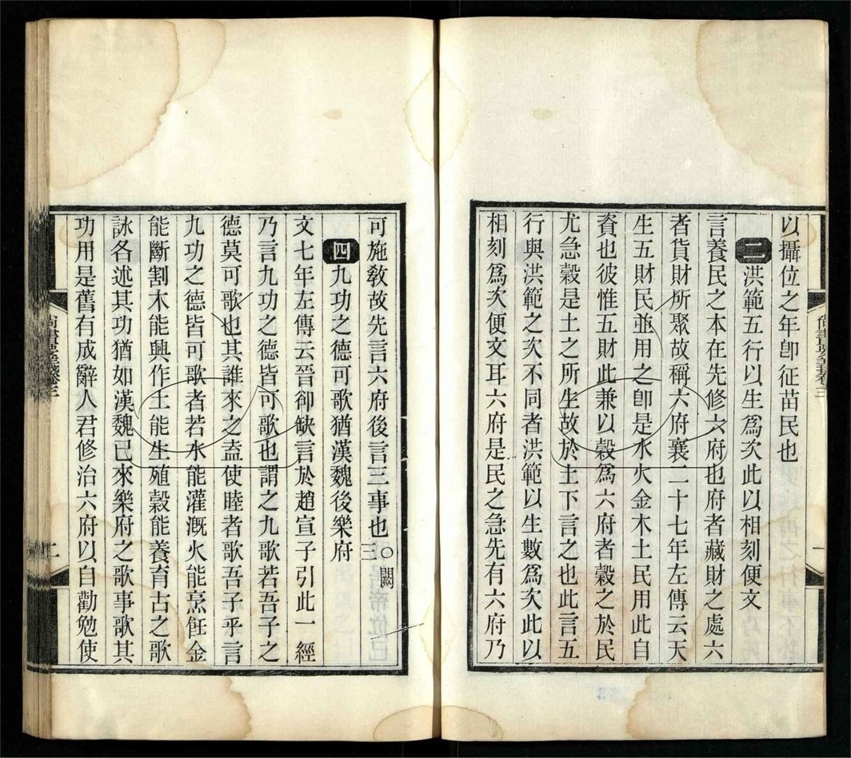 以攝位之年卽征苗民也
二洪範五行以生爲次此以相刻便文
言養民之本在先修六府也府者藏財之處六
者貨財所聚故稱六府襄二十七年左傳云天
生五財民並用之卽是水火金木土民用此自
資也彼惟五財此兼以穀爲六府者穀之於民
尤急穀是土之所生故於土下言之也此言五
行與洪範之次不同者洪範以生數爲次此以
相刻爲次便文耳六府是民之急先有六府乃
可施敎故先言六府後言三事也三○闕
四九功之德可歌猶漢魏後樂府
文七年左傳云晉卻缺言於趙宣子引此一經
乃言九功之德皆可歌也謂之九歌若吾子之
德莫可歌也其誰來之盍使睦者歌吾子乎言
九功之德皆可歌者若水能灌漑火能烹飪金
能斷割木能興作土能生殖穀能養育古之歌
詠各述其功猶如漢魏已來樂府之歌事歌其
功用是舊有成辭人君修治六府以自勸勉使
尙書要義卷三
二